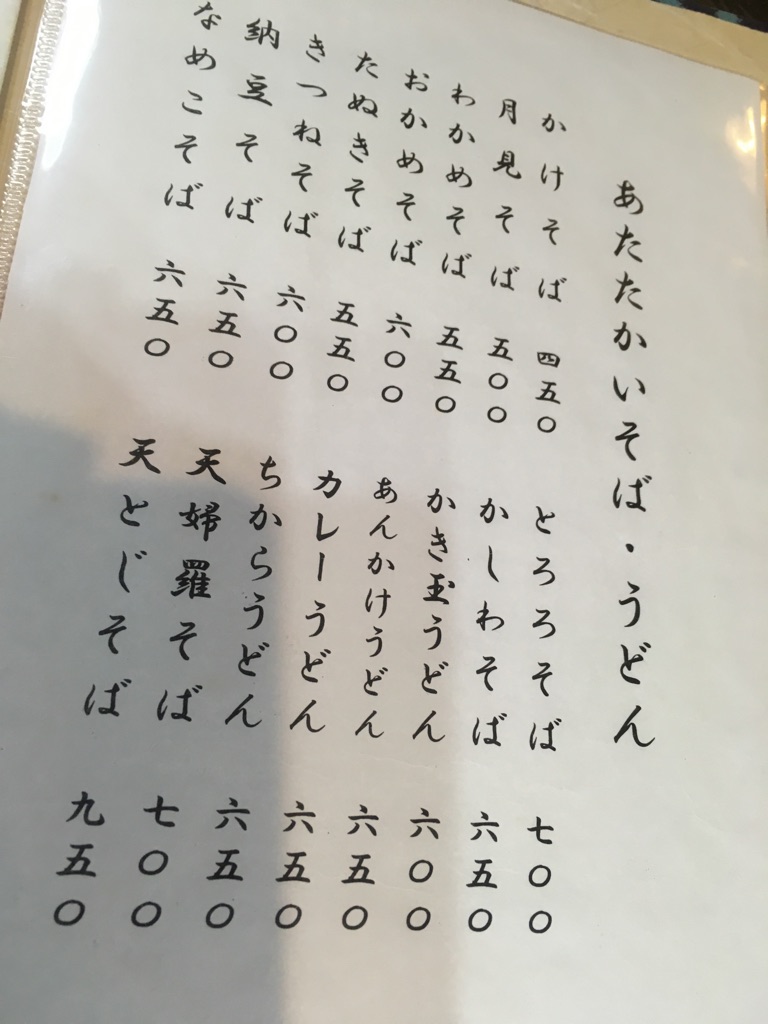 あたたかいそば・うどん
かけそば 四五〇
月見そば 五〇〇
わかめそば 五五〇
おかめそば 六〇〇
たぬきそば 五五〇
きつねそば 六〇〇
納豆そば 六五〇
なめこそば 六五〇
とろろそば 七〇〇
かしわそば 六五〇
かき玉うどん 六〇〇
あんかけうどん 六五〇
カレーうどん 六五〇
ちからうどん 六五〇
天婦羅そば 七〇〇
天とじそば 九五〇